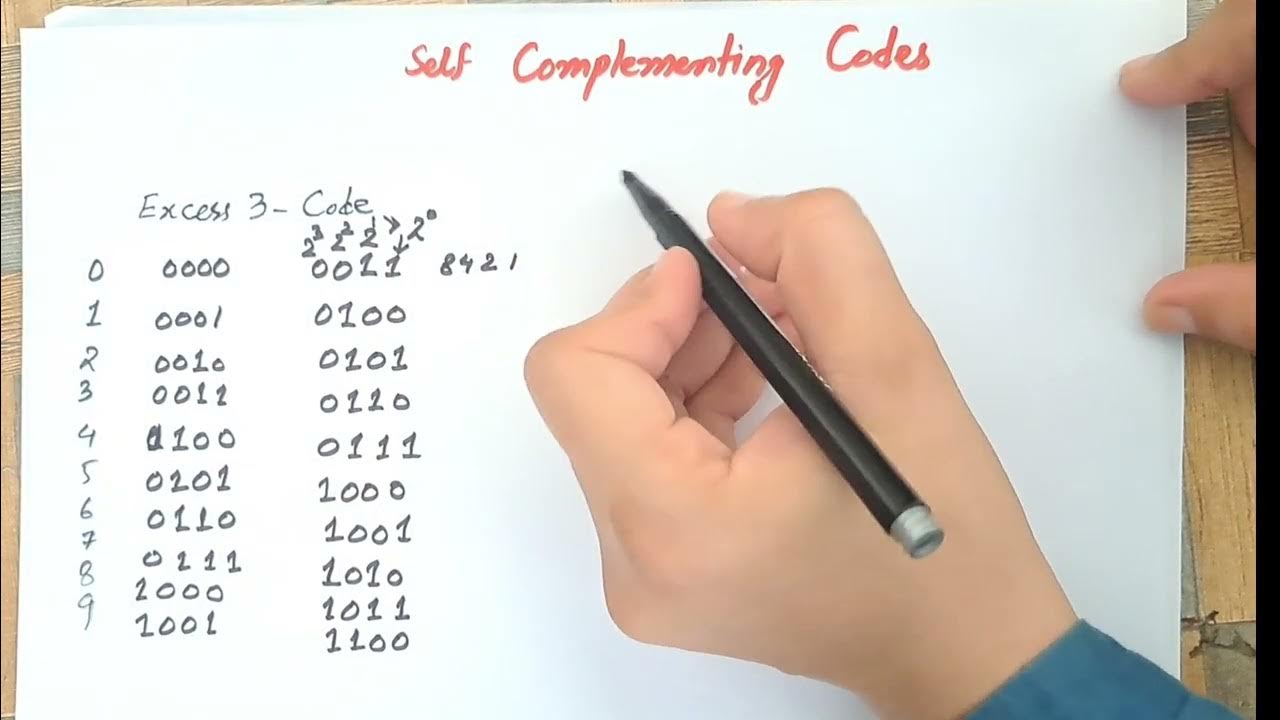 Self Complementing Codes
Excess 3- Code
2³ 2² 2¹ → 2⁰
0 0000 0011 8421
1 0001 0100
2 0010 0101
3 0011 0110
4 0100 0111
5 0101 1000
6 0110 1001
7 0111 1010
8 1000 1011
9 1001 1100